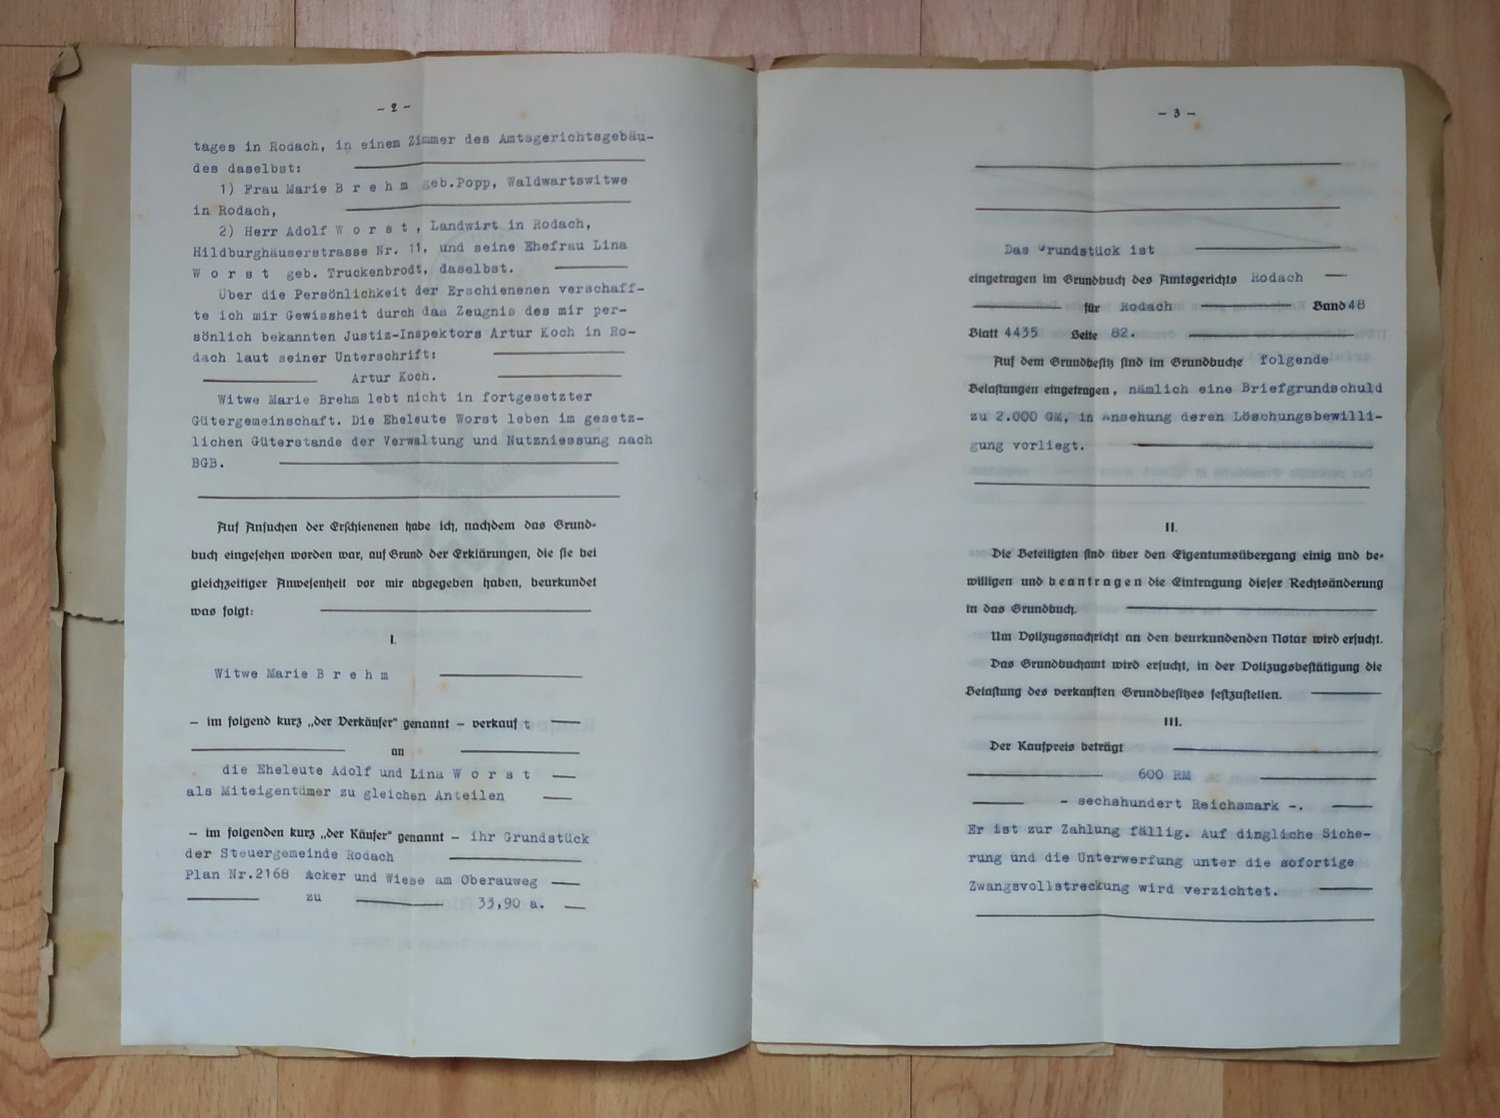 - 2 -
tages in Rodach, in einem Zimmer des Amtsgerichtsgebäu-
des daselbst:
1) Frau Marie B r e h m geb.Popp, Waldwartswitwe
in Rodach,
2) Herr Adolf W o r s t, Landwirt in Rodach,
Hildburghäuserstrasse Nr. 11, und seine Ehefrau Lina
W o r s t geb. Truckenbrodt, daselbst.
Über die Persönlichkeit der Erschienenen verschaff-
te ich mir Gewissheit durch das Zeugnis des mir per-
sönlich bekannten Justiz-Inspektors Artur Koch in Ro-
dach laut seiner Unterschrift:
Artur Koch.
Witwe Marie Brehm lebt nicht in fortgesetzter
Gütergemeinschaft. Die Eheleute Worst leben im gesetz-
lichen Güterstande der Verwaltung und Nutzniessung nach
BGB.
Auf Ansuchen der Erschienenen habe ich, nachdem das Grund-
buch eingesehen worden war, auf Grund der Erklärungen, die sie bei
gleichzeitiger Anwesenheit vor mir abgegeben haben, beurkundet
was folgt:
I.
Witwe Marie B r e h m
– im folgend kurz „der Verkäufer“ genannt – verkauf t
an
die Eheleute Adolf und Lina W o r s t
als Miteigentümer zu gleichen Anteilen
– im folgenden kurz „der Käufer“ genannt – ihr Grundstück
der Steuergemeinde Rodach
Plan Nr.2168 Acker und Wiese am Oberauweg
zu 33,90 a.
- 3 -
Das Grundstück ist
eingetragen im Grundbuch des Amtsgerichts Rodach
für Rodach Band 48
Blatt 4435 Seite 82.
Auf dem Grundbesitz sind im Grundbuche folgende
Belastungen eingetragen, nämlich eine Briefgrundschuld
zu 2.000 GM, in Ansehung deren Löschungsbewilli-
gung vorliegt.
II.
Die Beteiligten sind über den Eigentumsübergang einig und be-
willigen und beantragen die Eintragung dieser Rechtsänderung
in das Grundbuch.
Um Vollzugsnachricht an den beurkundenden Notar wird ersucht.
Das Grundbuchamt wird ersucht, in der Vollzugsbestätigung die
Belastung des verkauften Grundbesitzes festzustellen.
III.
Der Kaufpreis beträgt
600 RM
- sechshundert Reichsmark -.
Er ist zur Zahlung fällig. Auf dingliche Siche-
rung und die Unterwerfung unter die sofortige
Zwangsvollstreckung wird verzichtet.